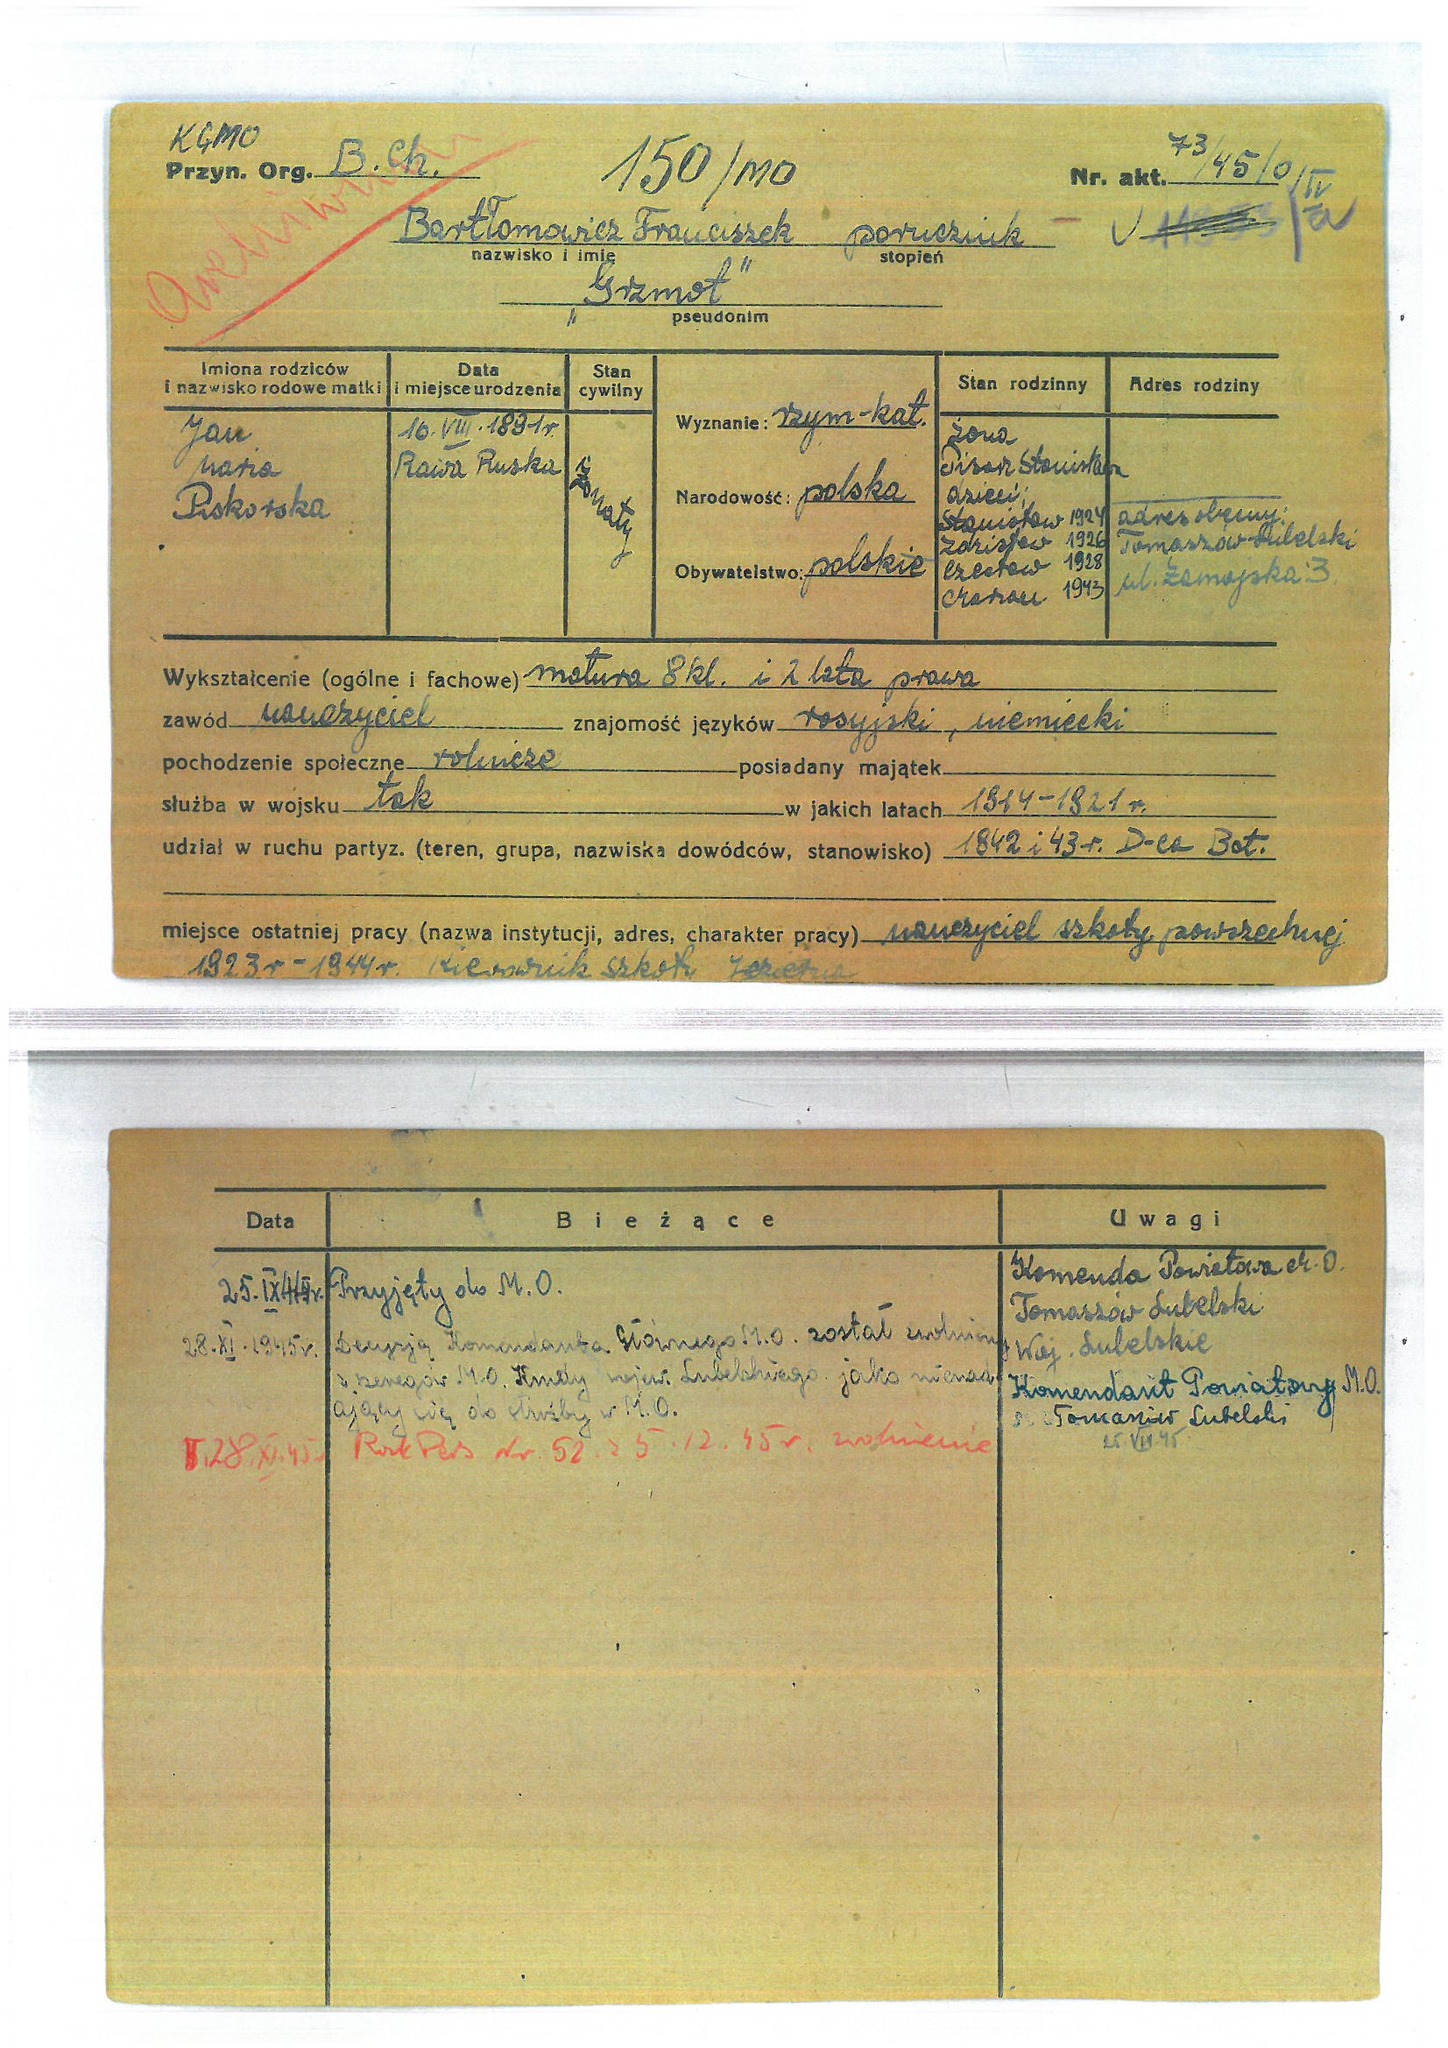 KGMO
Przyn. Org. B. Ch.
150/MO
Nr. akt. 73/45/0/IV
Bartłomowicz Franciszek porucznik
nazwisko i imię stopień
"Grzmot"
pseudonim
Imiona rodziców
i nazwisko rodowe matki
Data
i miejsce urodzenia
Stan
cywilny
Stan rodzinny
Adres rodziny
Jan
Maria
Piskorska
16. VIII. 1891 r.
Rawa Ruska
żonaty
Wyznanie: rzym-kat.
Narodowość: polska
Obywatelstwo: polskie
żona
Stanisława
dzieci:
Stanisław 1924
Zdzisław 1926
Czesław 1928
1943
adres obecny:
Tomaszów-Lubelski
ul. Zamojska 3
Wykształcenie (ogólne i fachowe) matura 8 kl. i 2 lata prawa
zawód nauczyciel znajomość języków rosyjski, niemiecki
pochodzenie społeczne rolnicze posiadany majątek
służba w wojsku tak w jakich latach 1914-1921 r.
udział w ruchu partyz. (teren, grupa, nazwiska dowódców, stanowisko) 1842 i 43 r. D-ca Bat.
miejsce ostatniej pracy (nazwa instytucji, adres, charakter pracy) nauczyciel szkoły powszechnej
1923 r - 1944 r. Kierownik szkoły
Data Bieżące Uwagi
25. IX 44 r. Przyjęty do M. O.
Komenda Powiatowa M. O.
Tomaszów Lubelski
Woj. Lubelskie
28. XI. 1945 r. Decyzją Komendanta Głównego M.O. został zwolniony
z szeregów M.O. Kmdy wojew. Lubelskiego jako nienad-
ający się do służby w M.O.
Komendant Powiatowy M.O.
Tomaszów Lubelski
25. VIII 45
28. XI. 45 r. Rozk Pers Nr. 52 z 5. 12. 45 r. zwolnienie